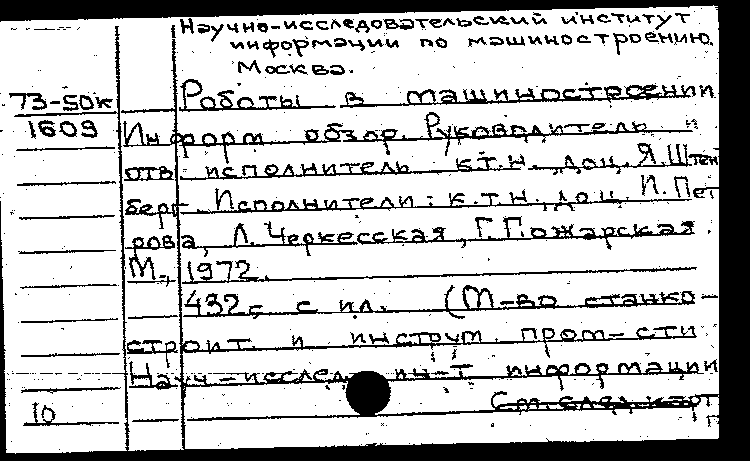 Научно-исследовательский институт
информации по машиностроению.
Москва.
73-50к Работы в машиностроении
1609 Информ обзор. Руководитель и
отв исполнитель к.т.н., доц. Я.Штен
берг. Исполнители: к.т.н., доц. И. Пет
рова, Л. Черкесская, Г. Пожарская.
М., 1972.
432 с ил. (М-во станко-
строит. и инструм. пром-сти
Науч-исслед. ин-т информации
10 См. след. карт